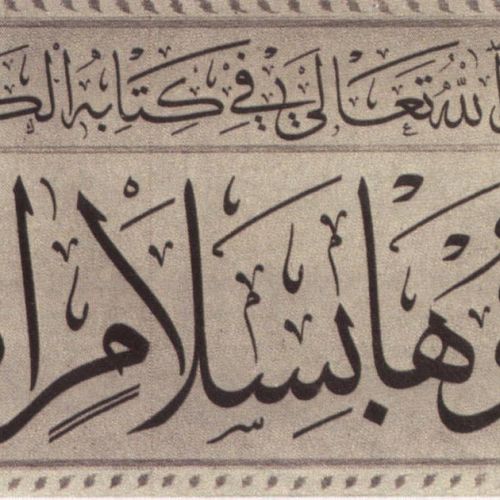 الله تعالى في كتابه الك
وها بسلام ا